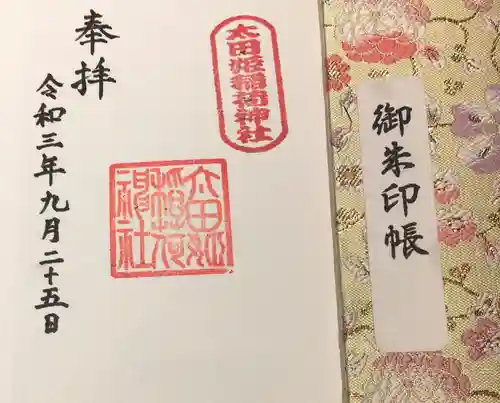 御朱印帳
太田姫稲荷神社
太田姫
稲荷
神社
奉拝
令和三年九月二十五日